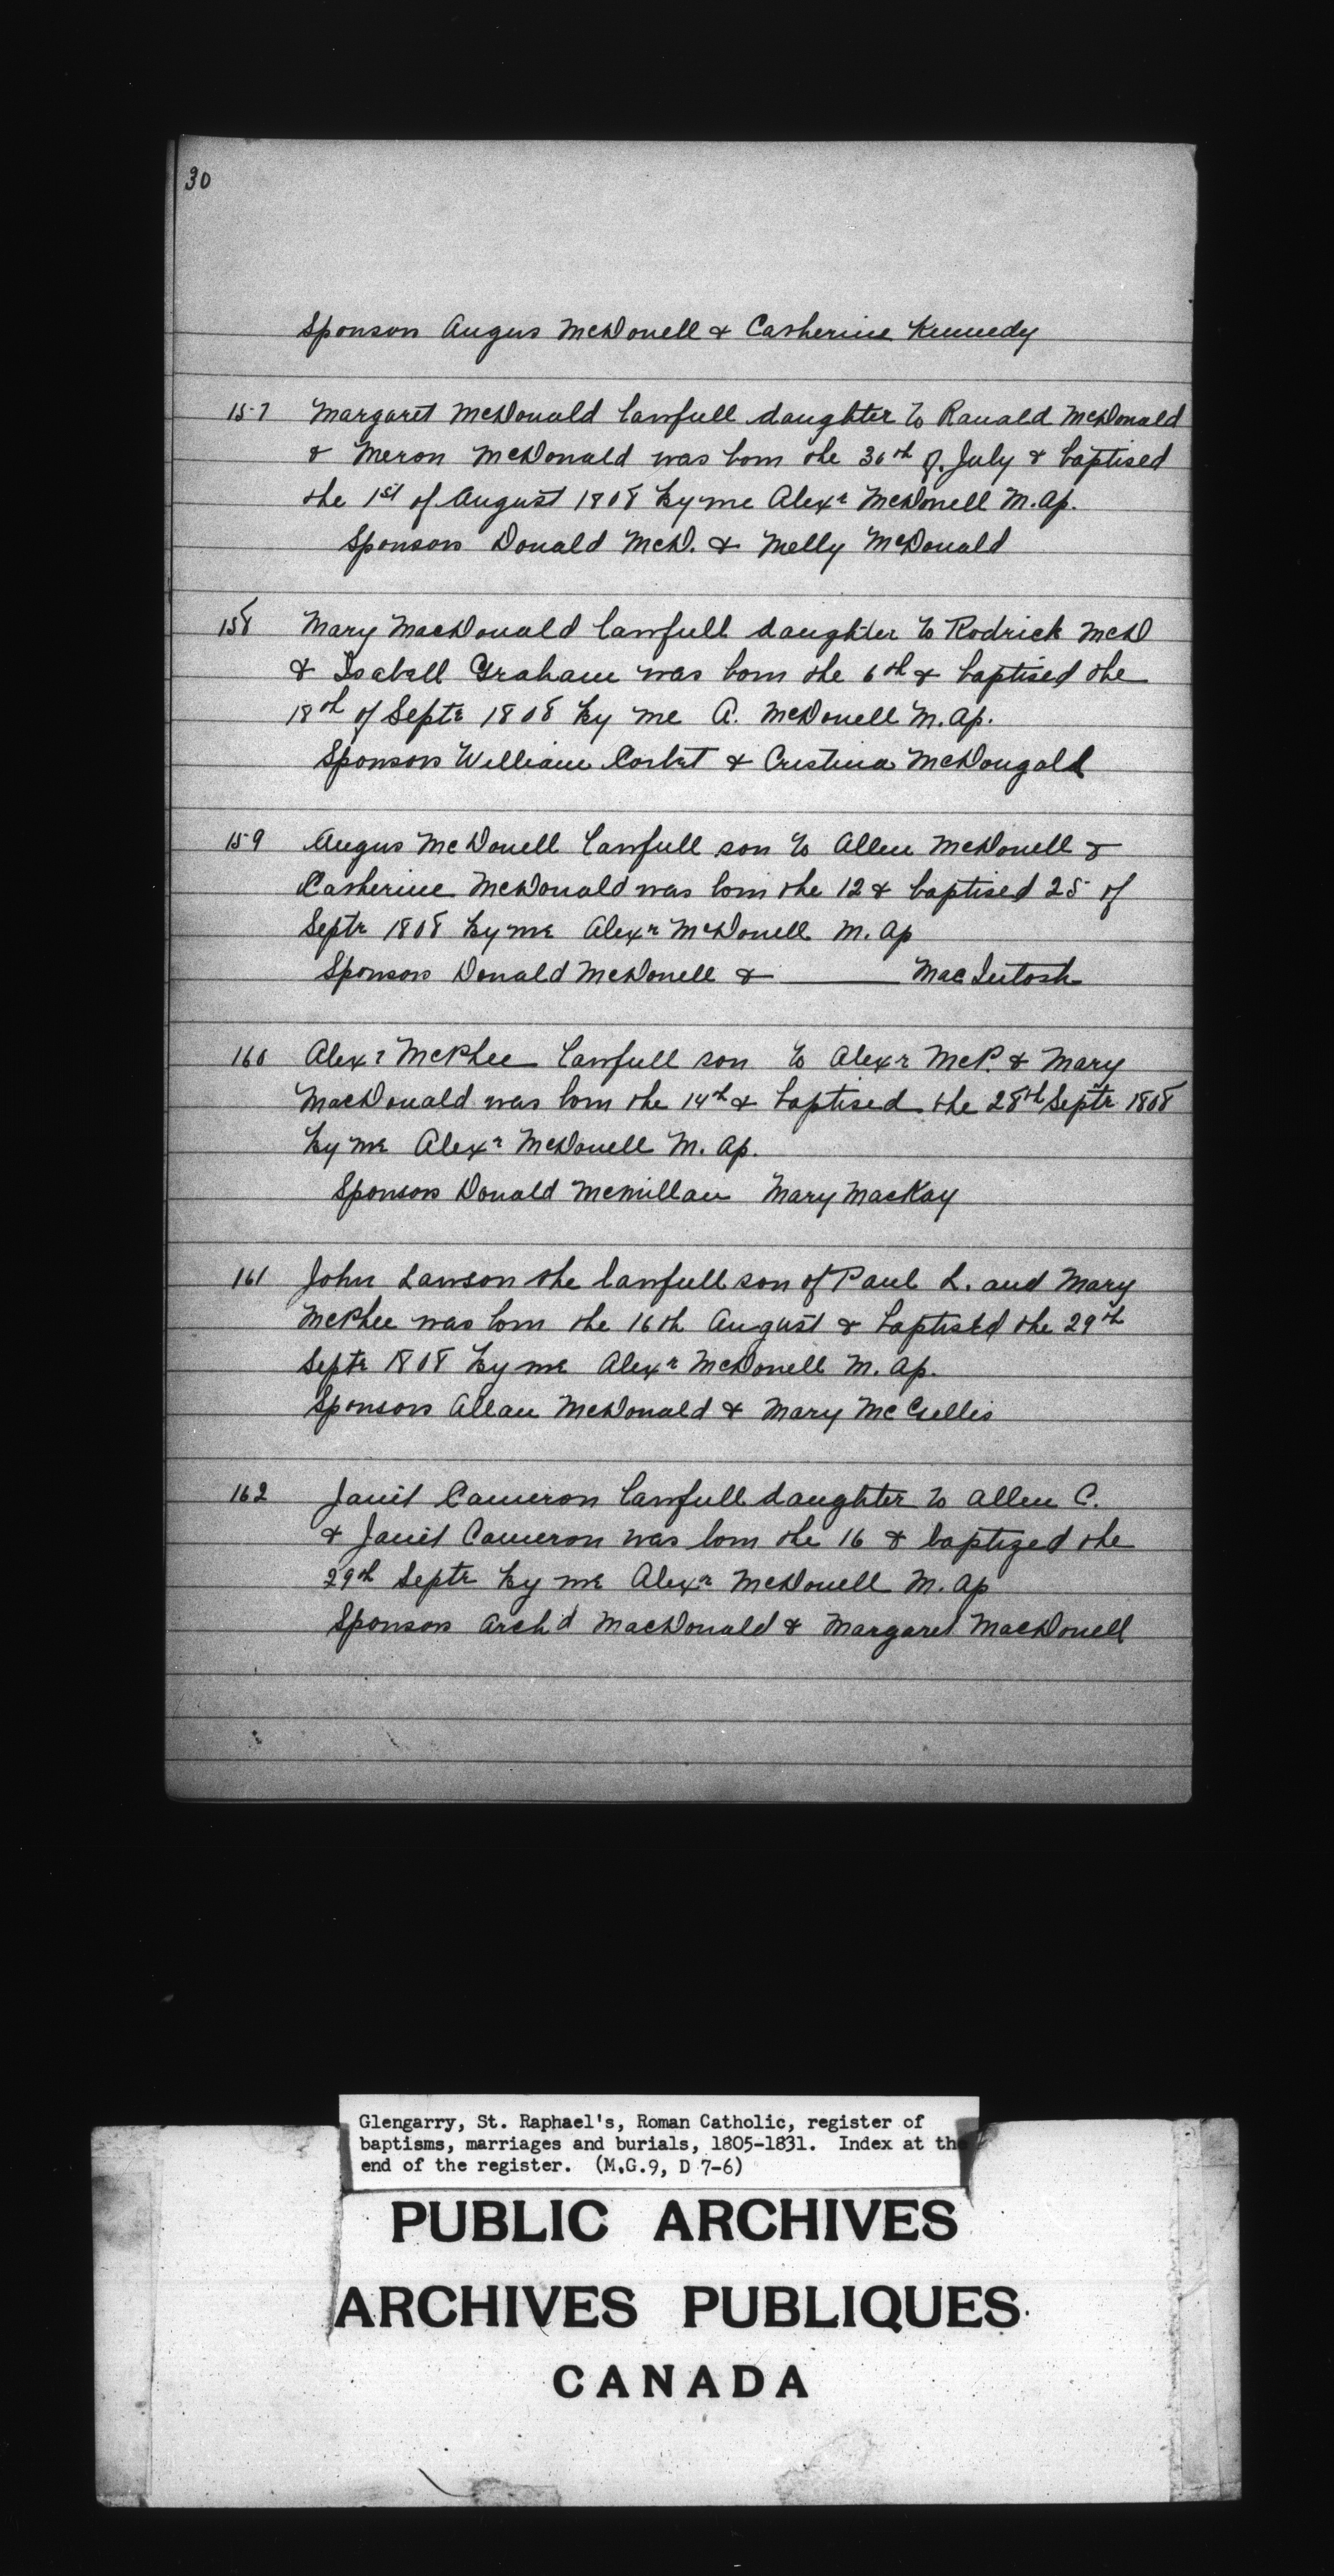 30
Sponsors Angus McDonell & Catherine Kennedy
157 Margaret McDonald lawfull daughter to Ranald McDonald
& Meron McDonald was born the 30th of July & baptised
the 1st of August 1808 by me Alexr McDonell M. Ap.
Sponsors Donald McD. & Melly McDonald
158 Mary MacDonald lawfull daughter to Rodrick McD
& Isabell Graham was born the 6th & baptised the
18th of Septr 1808 by me A. McDonell M. Ap.
Sponsors William Corbet & Cristina McDougald
159 Angus McDonell lawfull son to Allen McDonell &
Catherine McDonald was born the 12 & baptised 25 of
Septr 1808 by me Alexr McDonell M. Ap
Sponsors Donald McDonell & ——— MacIntosh
160 Alexr McPhee lawfull son to Alexr McP. & Mary
MacDonald was born the 14th & baptised the 28th Septr 1808
by me Alexr McDonell M. Ap.
Sponsors Donald McMillan Mary MacKay
161 John Lawson the lawfull son of Paul L. and Mary
McPhee was born the 16th August & baptised the 29th
Septr 1808 by me Alexr McDonell M. Ap.
Sponsors Allan McDonald & Mary McGellis
162 Janet Cameron lawfull daughter to Allen C.
& Janet Cameron was born the 16 & baptized the
29th Septr by me Alexr McDonell M. Ap
Sponsors Arch'd MacDonald & Margaret MacDonell
Glengarry, St. Raphael's, Roman Catholic, register of
baptisms, marriages and burials, 1805-1831. Index at the
end of the register. (M.G.9, D 7-6)
PUBLIC ARCHIVES
ARCHIVES PUBLIQUES
CANADA